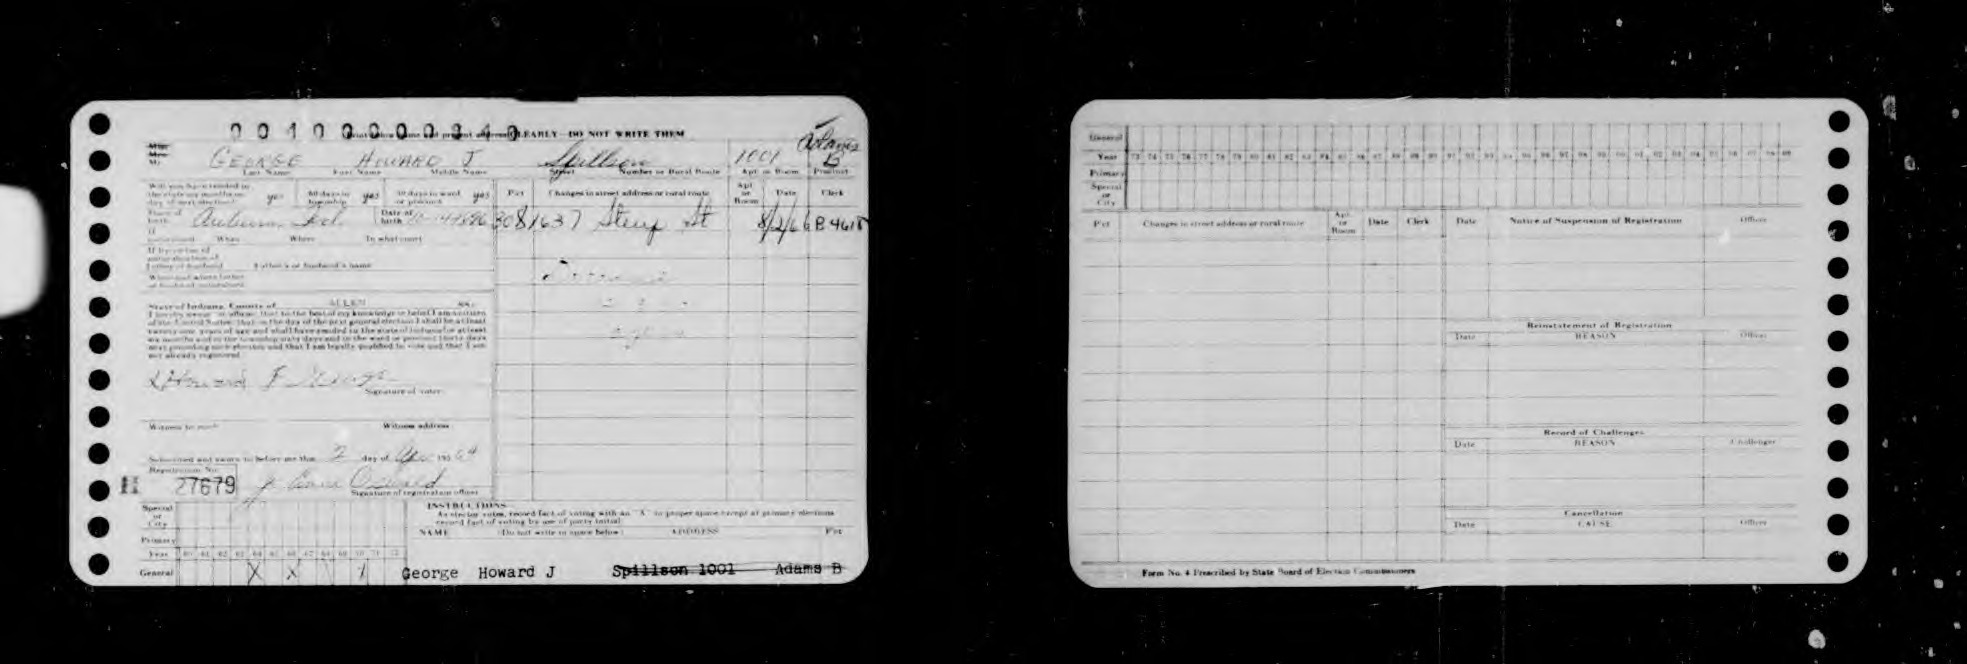 0 0 1 0 0 0 0 0 0 3 4 0
CLEARLY - DO NOT WRITE THEM
GEORGE HOWARD J Spillson 1001 Adams B
Last Name First Name Middle Name Street Number or Rural Route Apt. or Room Precinct
Will you have resided in the state six months on day of next election? yes 60 days in township yes 30 days in ward or precinct yes
Place of birth Auburn Ind. Date of birth
If naturalized When Where In what court
If by virtue of naturalization of father or husband Father's or husband's name
When and where father or husband naturalized
State of Indiana, County of ALLEN
I hereby swear or affirm, that to the best of my knowledge or belief I am a citizen
of the United States; that on the day of the next general election I shall be at least
twenty-one years of age and shall have resided in the state of Indiana for at least
six months and in the township sixty days and in the ward or precinct thirty days
next preceding such election and that I am legally qualified to vote and that I am
not already registered.
Howard J George
Signature of voter
Witness to mark Witness address
Subscribed and sworn to before me this 2 day of 1964
Registration No.
H 27679
Signature of registration officer
Pct Changes in street address or rural route Apt. or Room Date Clerk
308 1637 St 8/2/66
INSTRUCTIONS
As elector votes, record fact of voting with an "X" in proper space except at primary elections
record fact of voting by use of party initial.
NAME (Do not write in space below) ADDRESS Pct
Special or City
Primary
Year 60 61 62 63 64 65 66 67 68 69 70 71 72
General X X X
George Howard J Spillson 1001 Adams B
General
Year 73 74 75 76 77 78 79 80 81 82 83 84 85 86 87 88 89 90 91 92 93 94 95 96 97 98 99
Primary
Special or City
Pct Changes in street address or rural route Apt. or Room Date Clerk
Date Notice of Suspension of Registration Officer
Reinstatement of Registration
Date REASON Officer
Record of Challenges
Date REASON Challenger
Cancellation
Date CAUSE Officer
Form No. 4 Prescribed by State Board of Election Commissioners